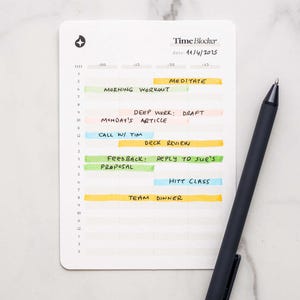 Time Blocker
DATE: 11/4/2025
:00 :15 :30 :45
MEDITATE
MORNING WORKOUT
DEEP WORK: DRAFT
MONDAY'S ARTICLE
CALL W/ TIM
DECK REVIEW
FEEDBACK: REPLY TO SUE'S
PROPOSAL
HIIT CLASS
TEAM DINNER